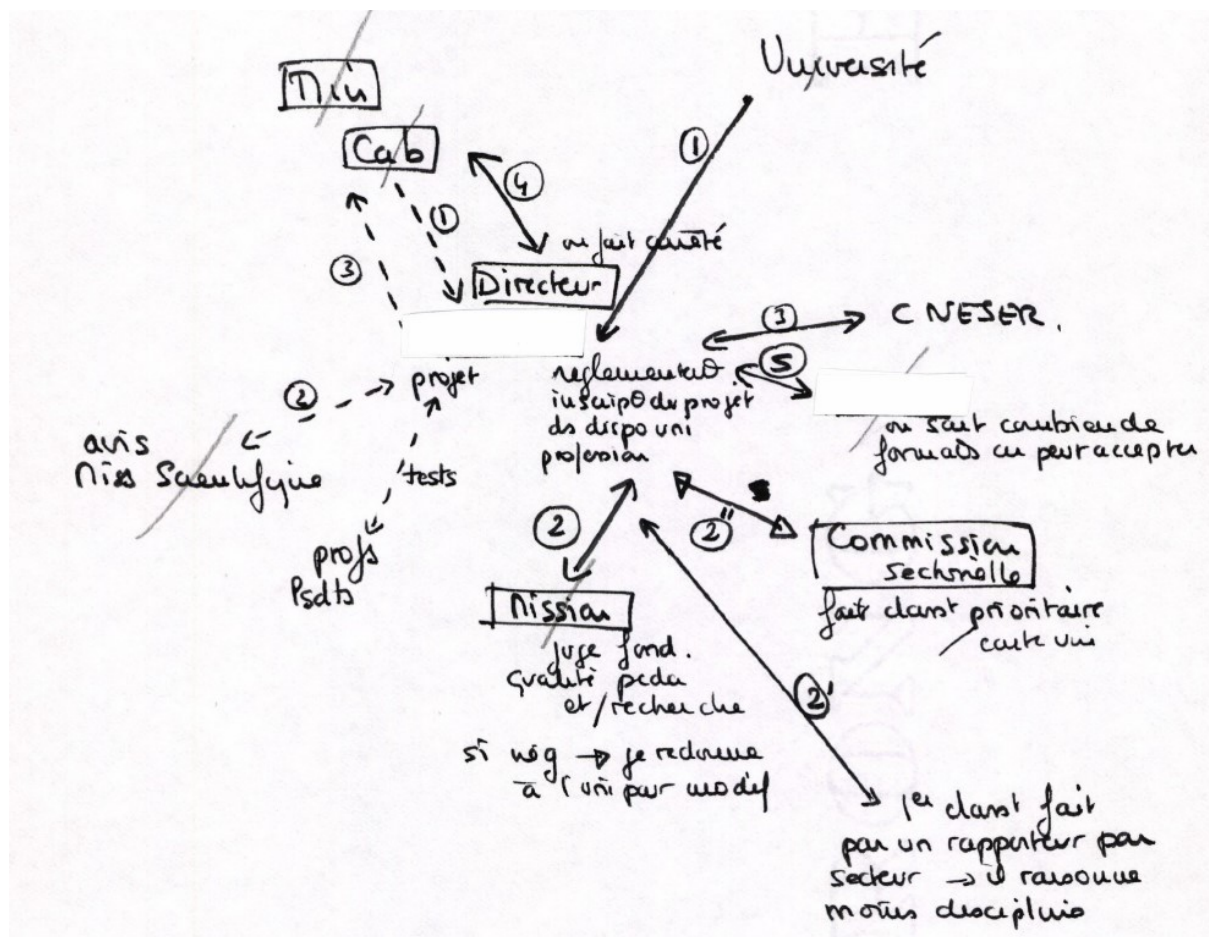 Université
Min
Cab
①
④
①
③
on fait arrêté
Directeur
③
CNESER.
⑤
projet
②
inscripθ du projet
ds dispo uni
profession
on sait combien de
avis
Miss Scientifique
tests
profs
Psdts
②
2''
Commission
Sectorielle
fait clamst prioritaire
/ carte uni
Mission
juge fond.
qualité péda
et / recherche
2'
si nég → je redonne
à l'uni pour modif
1er clamst fait
par un rapporteur par
secteur → il raisonne
moins